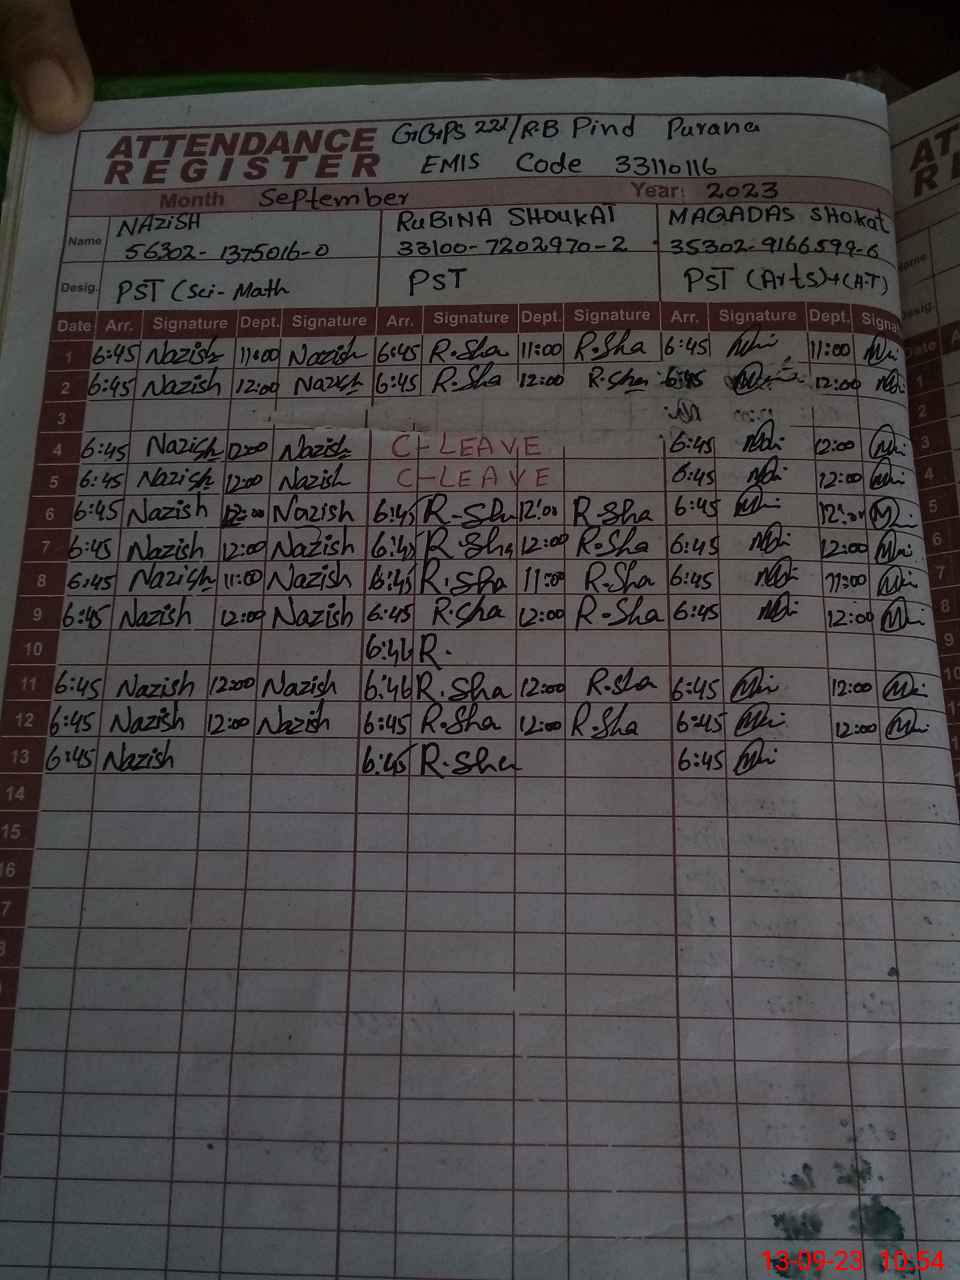 ATTENDANCE REGISTER
GGPS 221/R.B Pind Purana
EMIS Code 33110116
Month September Year: 2023
Name NAZISH RUBINA SHOUKAT MAQADAS SHOKAT
56302-1375016-0 33100-7202970-2 35302-9166599-6
Desig. PST (Sci-Math PST PST (Arts)+(A-T)
Date Arr. Signature Dept. Signature Arr. Signature Dept. Signature Arr. Signature Dept. Signat
1 6:45 Nazish 11:00 Nazish 6:45 R.Sha 11:00 R.Sha 6:45 11:00
2 6:45 Nazish 12:00 Nazish 6:45 R.Sha 12:00 R.Sha 6:45 12:00
3
4 6:45 Nazish 12:00 Nazish C-LEAVE 6:45 12:00
5 6:45 Nazish 12:00 Nazish C-LEAVE 6:45 12:00
6 6:45 Nazish 12:00 Nazish 6:45 R-Sha 12:00 R.Sha 6:45 12:00
7 6:45 Nazish 12:00 Nazish 6:45 R.Sha 12:00 R.Sha 6:45 12:00
8 6:45 Nazish 11:00 Nazish 6:45 R.Sha 11:00 R.Sha 6:45 11:00
9 6:45 Nazish 12:00 Nazish 6:45 R.Sha 12:00 R.Sha 6:45 12:00
10 6:46 R.
11 6:45 Nazish 12:00 Nazish 6:46 R.Sha 12:00 R.Sha 6:45 12:00
12 6:45 Nazish 12:00 Nazish 6:45 R.Sha 12:00 R.Sha 6:45 12:00
13 6:45 Nazish 6:45 R.Sha 6:45
14
15
16
7
13-09-23 10:54